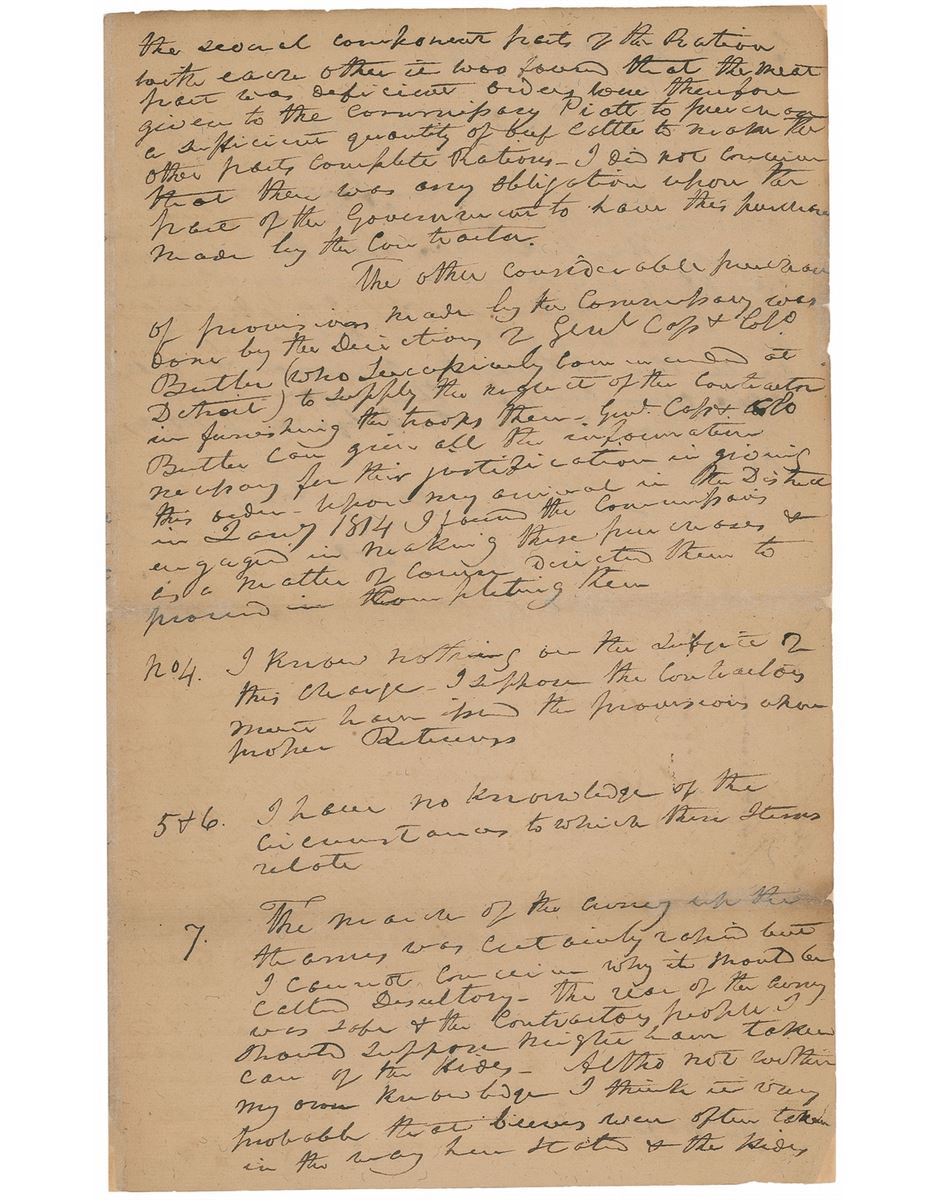 the several component parts of the Ration
with each other it was found that the meat
part was deficient orders were therefore
given to the Commissary Piatt to purchase
a sufficient quantity of beef Cattle to make the
other parts complete Rations - I did not conceive
that there was any obligation upon the
part of the Government to have this purchase
made by the Contractor.
The other considerable purchase
of provisions made by the Commissary was
done by the Directions of Genl Cass & Colo.
Butler (who Successively commanded at
Detroit) to supply the neglect of the Contractor
in furnishing the troops there - Genl. Cass & Colo
Butler can give all the information
necessary for their justification in giving
this order - upon my arrival in the District
in Jany 1814 I found the Commissaries
engaged in making these purchases &
as a matter of Course Directed them to
proceed in Completing them
No 4. I know nothing on the subject of
this charge - I suppose the Contractors
must have issued the provisions upon
proper Returns
5 & 6. I have no knowledge of the
circumstances to which these Items
relate
7. The march of the army up the
thames was certainly rapid but
I cannot conceive why it should be
called Desultory - the rear of the army
was safe & the Contractors people I
should suppose might have taken
care of the Hides - Altho not within
my own knowledge I think it very
probable that beeves were often taken
in the way here stated & the Hides